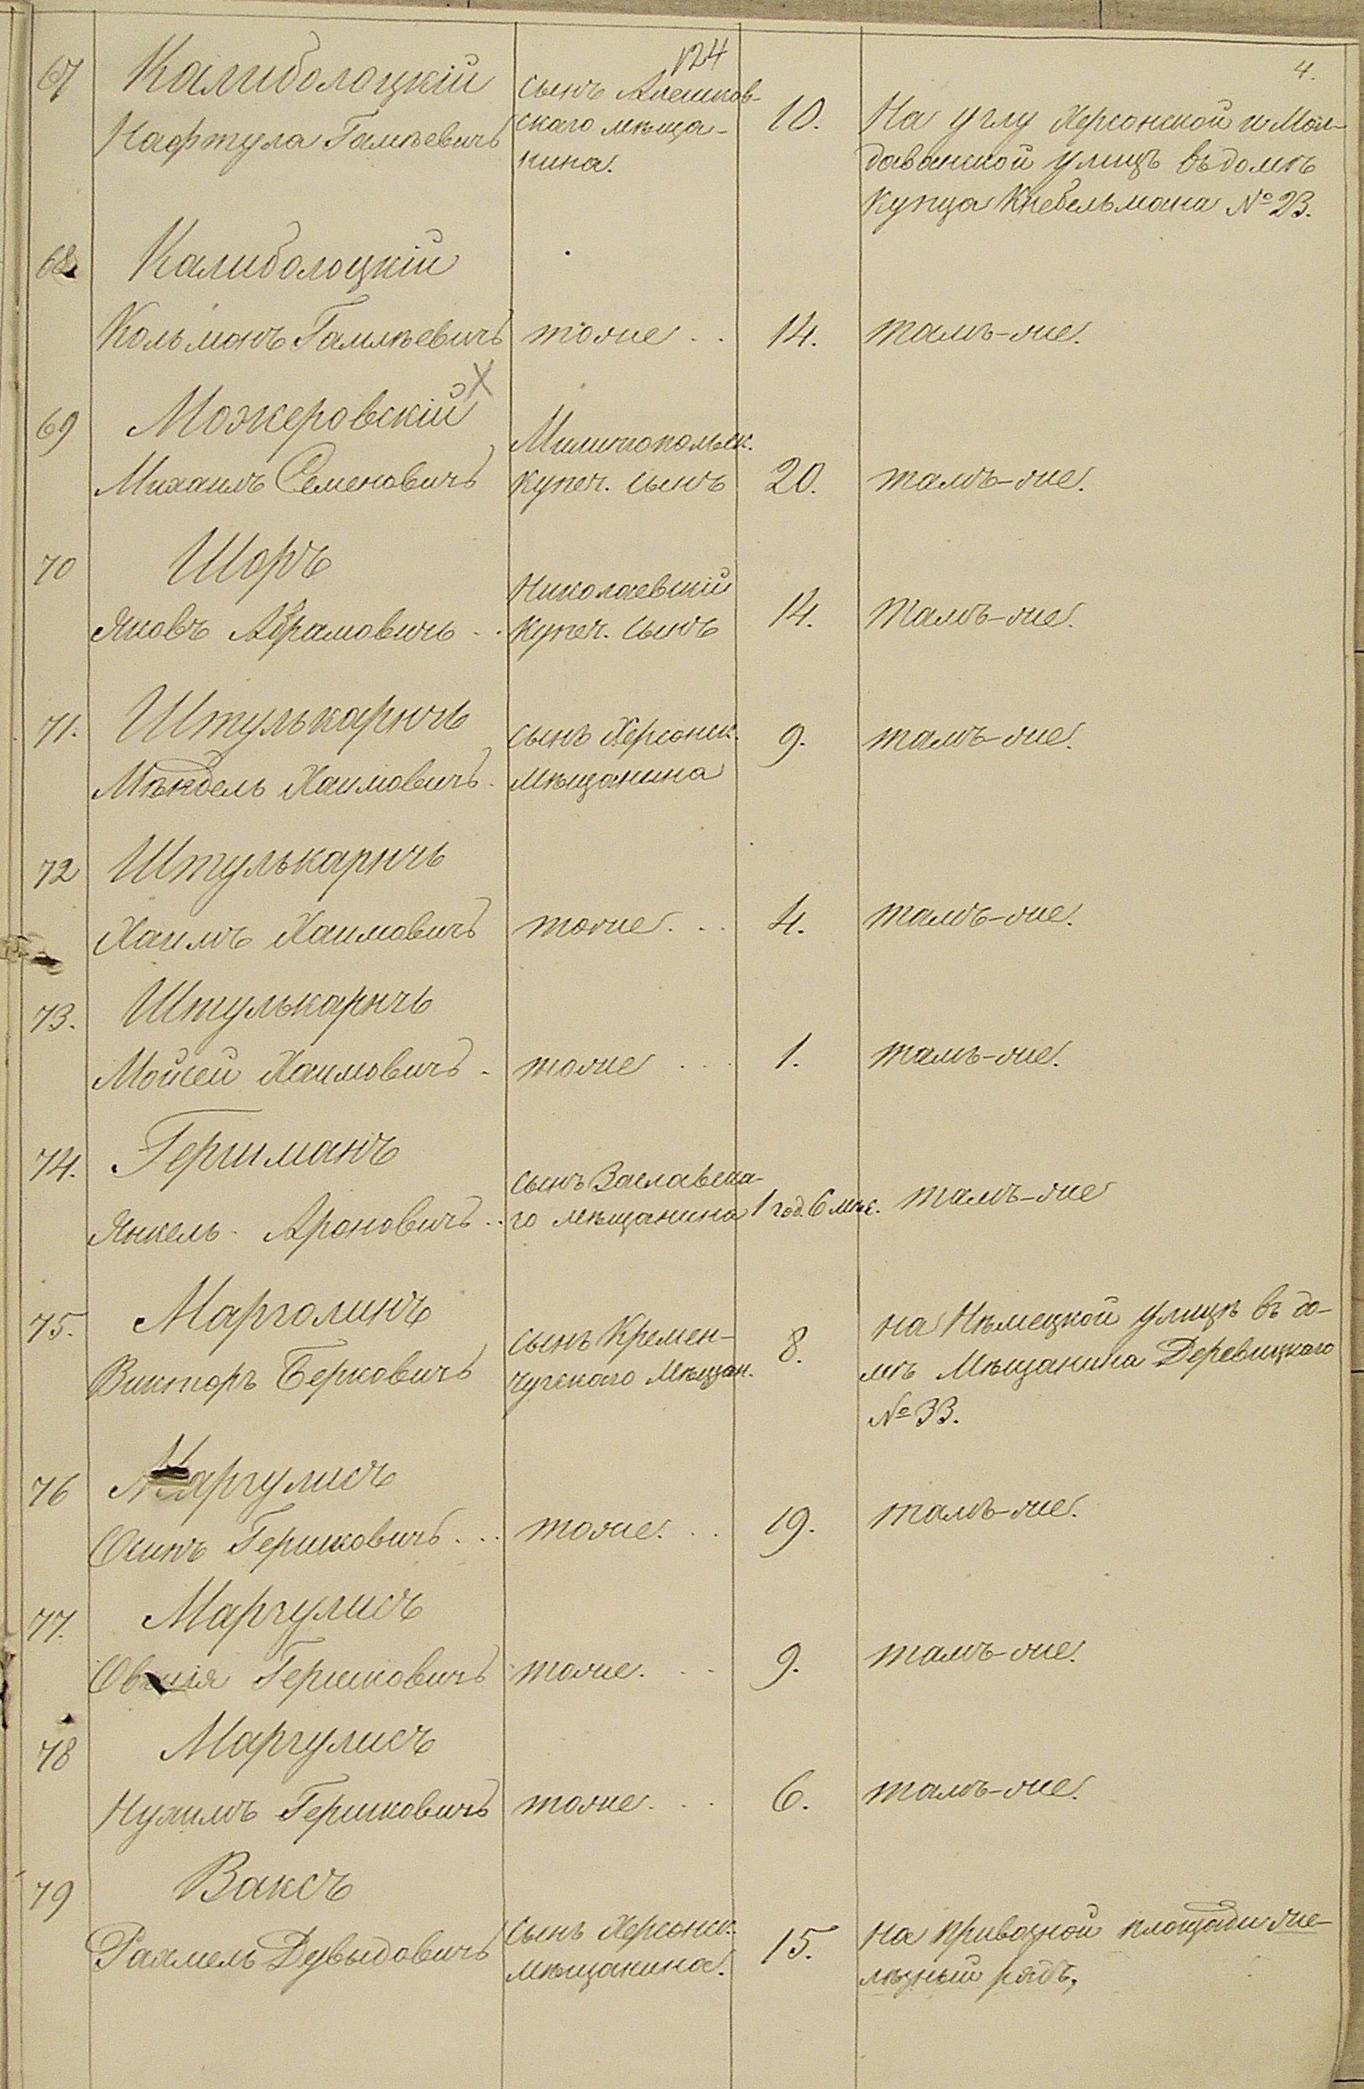 124
4.
67 Калиболоцкій
Нафтула Гамшеевичъ
сынъ Алешков-
скаго мѣща-
нина.
10.
На углу Херсонской и Мол-
даванской улицъ въ домѣ
купца Кнебельмана № 23.
68. Калиболоцкій
Кольманъ
тоже . .
14.
тамъ-же.
69 Можеровскій
Михаилъ Семеновичъ
Милитопольск.
купеч. сынъ
20.
тамъ-же.
70 Шоръ
Яковъ Абрамовичъ . .
Николаевскій
купеч. сынъ
14.
тамъ-же.
71. Штулькарнчъ
Мѣндель Хаимовичъ.
сынъ Херсонск.
мѣщанина
9.
тамъ-же.
72 Штулькарнчъ
Хаимъ Хаимовичъ
тоже . . .
4.
тамъ-же.
73. Штулькарнчъ
Мойсей Хаимовичъ .
тоже . . .
1.
тамъ-же.
74. Гершманъ
Янкель Ароновичъ . .
сынъ Заславска-
го мѣщанина
1 год. 6 мѣс.
тамъ-же
75. Марголинъ
Викторъ Берковичъ
сынъ Кремен-
чугскаго Мѣщан.
8.
на Нѣмецкой улицѣ въ до-
мѣ Мѣщанина Деревицкаго
№ 33.
76 Маргулисъ
Осипъ Гершковичъ . . .
тоже . . .
19.
тамъ-же.
77. Маргулисъ
Овшія Гершковичъ
тоже . . .
9.
тамъ-же.
78 Маргулисъ
Нухимъ Гершковичъ
тоже . . .
6.
тамъ-же.
79 Ваксъ
Рахмель Дувыдовичъ
сынъ Херсонск.
мѣщанина.
15.
На привозной площади же-
лѣзный рядъ,